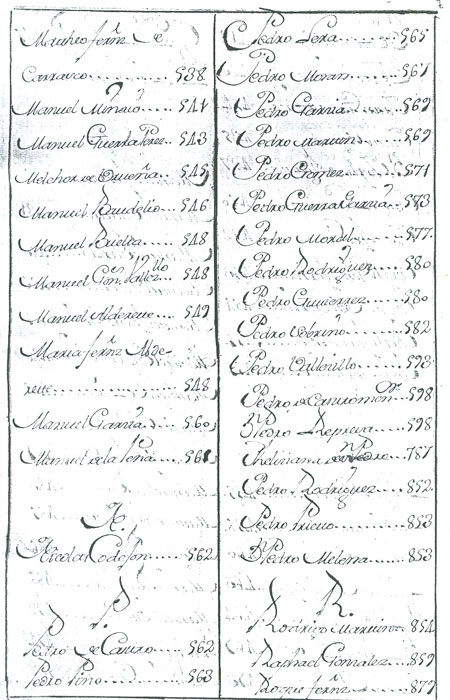 Matheo fern.z de
Carrasco............538
Manuel Minaio.....541
Manuel Guerra Perez..543
Melchor de....545
Manuel Baudelio...546
Manuel....548
Manuel Gonz.....548
Manuel Alderete...549
Maria fern.z Alde-
rete................548
Manuel Garzia....560
Manuel de la Peña...561
N.
Nicolas....562
P.
Pedro de Castro.....562
Pedro Pino.......563
Pedro Pera.......565
Pedro Moran.....567
Pedro Garzia......569
Pedro Martin......569
Pedro Gomez.....571
Pedro Guerra Garzia..573
Pedro Moral....577
Pedro Rodriguez....580
Pedro Gutierrez....580
Pedro Sobrino......582
Pedro....593
Pedro de....598
D.n Pedro....598
787
Pedro Rodriguez....852
Pedro Prieto.......853
D.n Pedro....853
R.
Rodrigo Martin....854
Raphael Gonzalez....859
Roque fern.z.......879